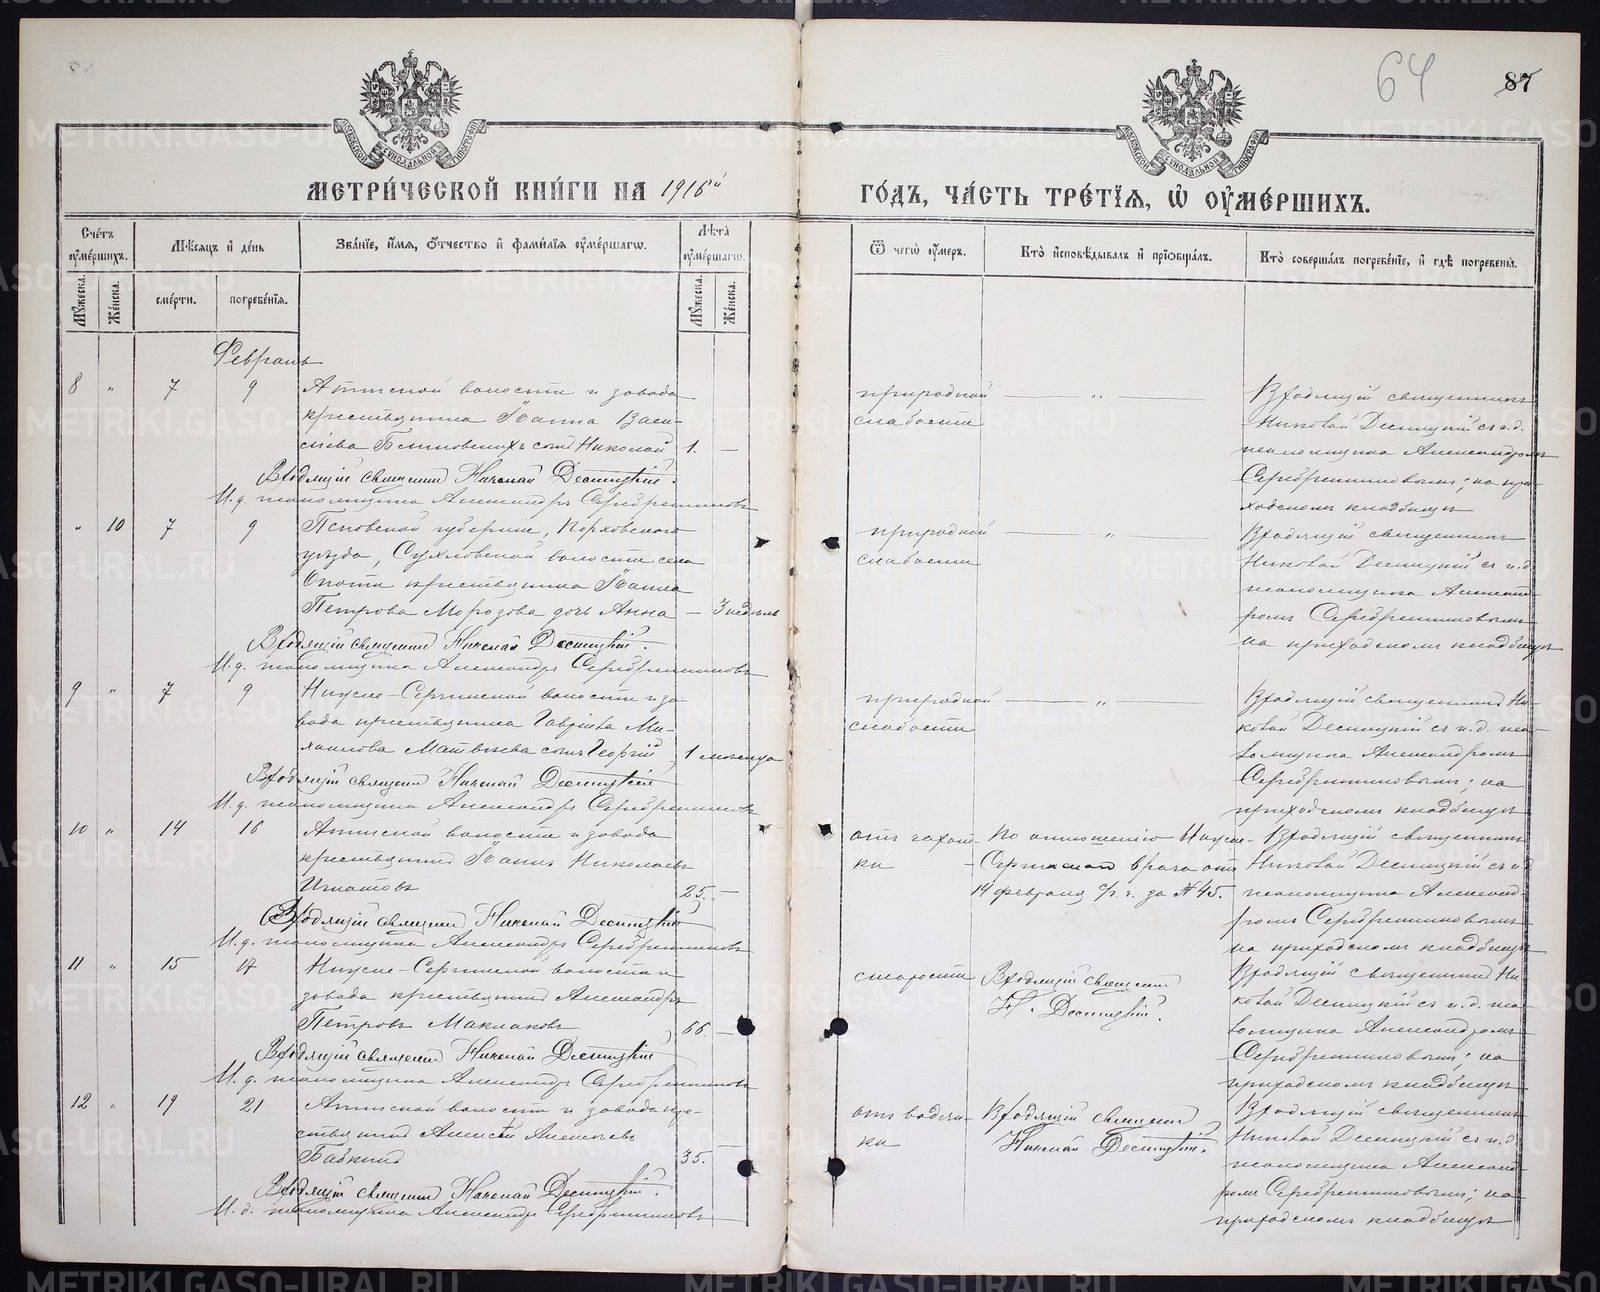 64
87
МОСКОВСКОЙ СѴНОДАЛЬНОЙ ТИПОГРАФІИ
МОСКОВСКОЙ СѴНОДАЛЬНОЙ ТИПОГРАФІИ
МЕТРИ́ЧЕСКОЙ КНИ́ГИ НА 1916й
ГО́ДЪ, ЧА́СТЬ ТРЕ́ТІѦ, Ѡ҆ ОУ҆МЕ́РШИХЪ.
Сче́тъ оу҆ме́ршихъ.
Мѣ́сяцъ и҆ де́нь
Зва́нїе, и҆́мѧ, ѻ҆́тчество и҆ фами́лїѧ оу҆ме́ршагѡ.
Лѣ́та оу҆ме́ршагѡ.
Мꙋ́жеска. Же́нска.
сме́рти. погребе́нїѧ.
Мꙋ́жеска. Же́нска.
Ѿ чегѡ̀ оу҆́меръ.
Кто̀ и҆сповѣ́дывалъ и҆ прїѡбща́лъ.
Кто̀ соверша́лъ погребе́нїе, и҆ гдѣ̀ погребены̀.
Февраль
8 " 7 9 Атигской волости и завода
крестьянина Іоанна Васи-
льева сынъ Николай 1. —
Входящій священникъ Николай Десницкій.
И.д. псаломщика Александръ Серебренниковъ
природной
слабости
— " —
Входящій священникъ
Николай Десницкій съ и.д.
псаломщика Александромъ
Серебренниковымъ; на при-
ходскомъ кладбищѣ
" 10 7 9 Псковской губерніи, Порховского
уѣзда, волости села
крестьянина
Петрова Морозова дочь Анна — 3 недѣль
Входящій священникъ Николай Десницкій.
И.д. псаломщика Александръ Серебренниковъ
природной
слабости
— " —
Входящій священникъ
Николай Десницкій съ и.д.
псаломщика Александ-
ромъ Серебренниковымъ
на приходскомъ кладбищѣ
9 " 7 9 Нижне-Сергинской волости и за-
вода крестьянина Гавріила Ми-
хаилова Матвѣева сынъ Георгій 1 мѣсяца
Входящій священникъ Николай Десницкій
И.д. псаломщика Александръ Серебренниковъ
природной
слабости
— " —
Входящій священникъ Ни-
колай Десницкій съ и.д. пса-
ломщика Александромъ
Серебренниковымъ; на
приходскомъ кладбищѣ
10 " 14 16 Атигской волости и завода
крестьянинъ Іоаннъ Николаевъ
Игнатовъ 25. —
Входящій священникъ Николай Десницкій
И.д. псаломщика Александръ Серебренниковъ
отъ чахот-
ки
По отношенію Нижне-
Сергинскаго врача отъ
14 февраля с/г. за № 45.
Входящій священникъ
Николай Десницкій съ и.д.
псаломщика Александ-
ромъ Серебренниковымъ
на приходскомъ кладбищѣ
11 " 15 17 Нижне-Сергинской волости и
завода крестьянинъ Александръ
Петровъ Маклаковъ 66. —
Входящій священникъ Николай Десницкій
И.д. псаломщика Александръ Серебренниковъ
старости
Входящій священникъ
Н. Десницкій.
Входящій священникъ Ни-
колай Десницкій съ и.д. пса-
ломщика Александромъ
Серебренниковымъ; на
приходскомъ кладбищѣ
12 " 19 21 Атигской волости и завода кре-
стьянинъ Алексѣй Алексѣевъ
Бабкинъ 35. —
Входящій священникъ Николай Десницкій.
И.д. псаломщика Александръ Серебренниковъ
отъ водян-
ки
Входящій священникъ
Николай Десницкій.
Входящій священникъ
Николай Десницкій съ и.д.
псаломщика Александ-
ромъ Серебренниковымъ; на
приходскомъ кладбищѣ
METRIKI.GASO-URAL.RU